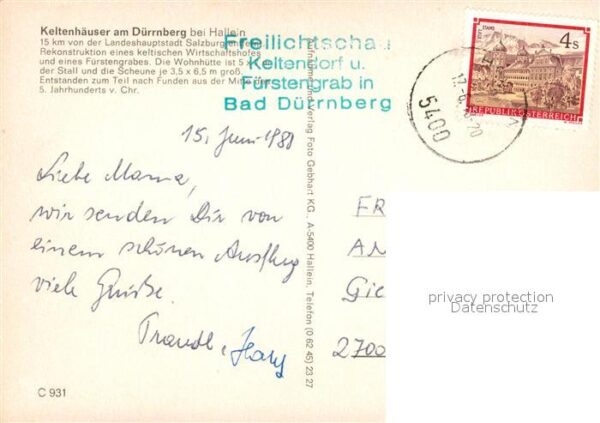 Keltenhäuser am Dürrnberg bei Hallein
15 km von der Landeshauptstadt Salzburg
Rekonstruktion eines keltischen Wirtschaftshofes
und eines Fürstengrabes. Die Wohnhütte ist 5 x
der Stall und die Scheune je 3,5 x 6,5 m groß.
Entstanden zum Teil nach Funden aus der Mitte
5. Jahrhunderts v. Chr.
Freilichtschau
Keltendorf u.
Fürstengrab in
Bad Dürrnberg
STAMS
4s
REPUBLIK ÖSTERREICH
5400
15. Juni 1988
Liebe Mama,
wir senden Dir von
einem schönen Ausflug
viele Grüße.
Traudl, Hans
Aufnahme und Verlag Foto Gebhart KG., A-5400 Hallein, Telefon (0 62 45) 23 27
FR
AN
Gie
2700
privacy protection
Datenschutz
C 931